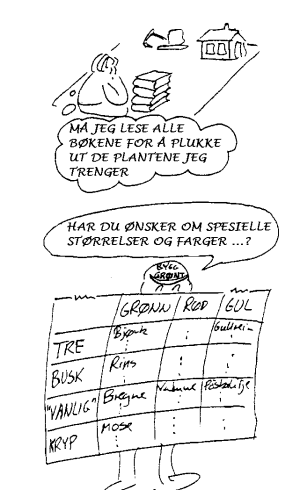 MÅ JEG LESE ALLE
BØKENE FOR Å PLUKKE
UT DE PLANTENE JEG
TRENGER
HAR DU ØNSKER OM SPESIELLE
STØRRELSER OG FARGER ...?
BYGG
GRØNT
GRØNN RØD GUL
TRE Bjørk : Gullregn
BUSK Rips : :
"VANLIG" Bregne Valmue Påskelilje
KRYP Mose : :